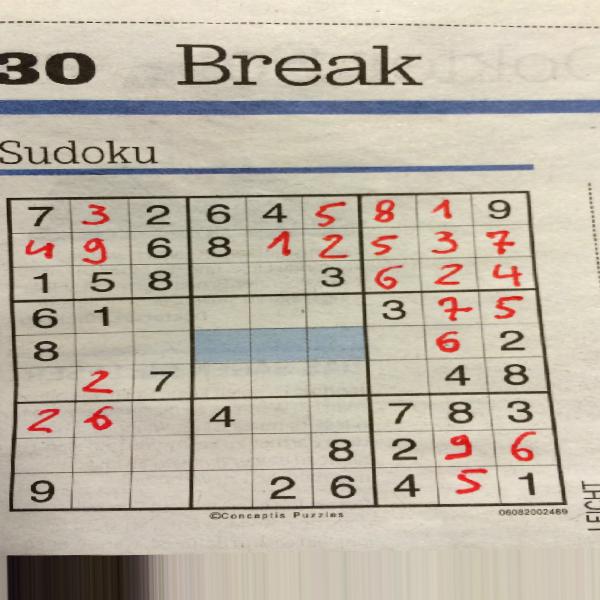 30 Break
Sudoku
7 3 2 6 4 5 8 1 9
4 9 6 8 1 2 5 3 7
1 5 8 3 6 2 4
6 1 3 7 5
8 6 2
2 7 4 8
2 6 4 7 8 3
8 2 9 6
9 2 6 4 5 1
©Conceptis Puzzles 06082002489
LEICHT